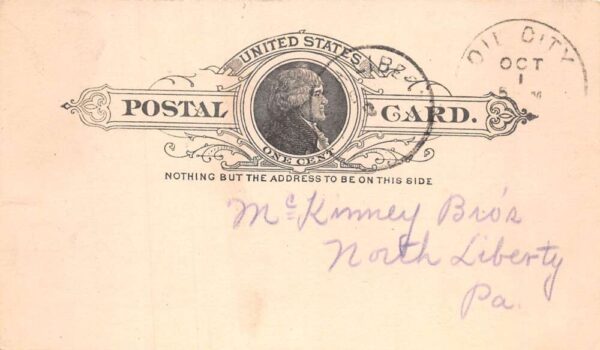 UNITED STATES
POSTAL CARD.
ONE CENT
NOTHING BUT THE ADDRESS TO BE ON THIS SIDE
OIL CITY
OCT
1
McKinney Bro's
North Liberty
Pa.